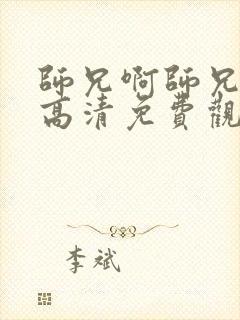 師兄啊師兄
高清免費觀
李斌